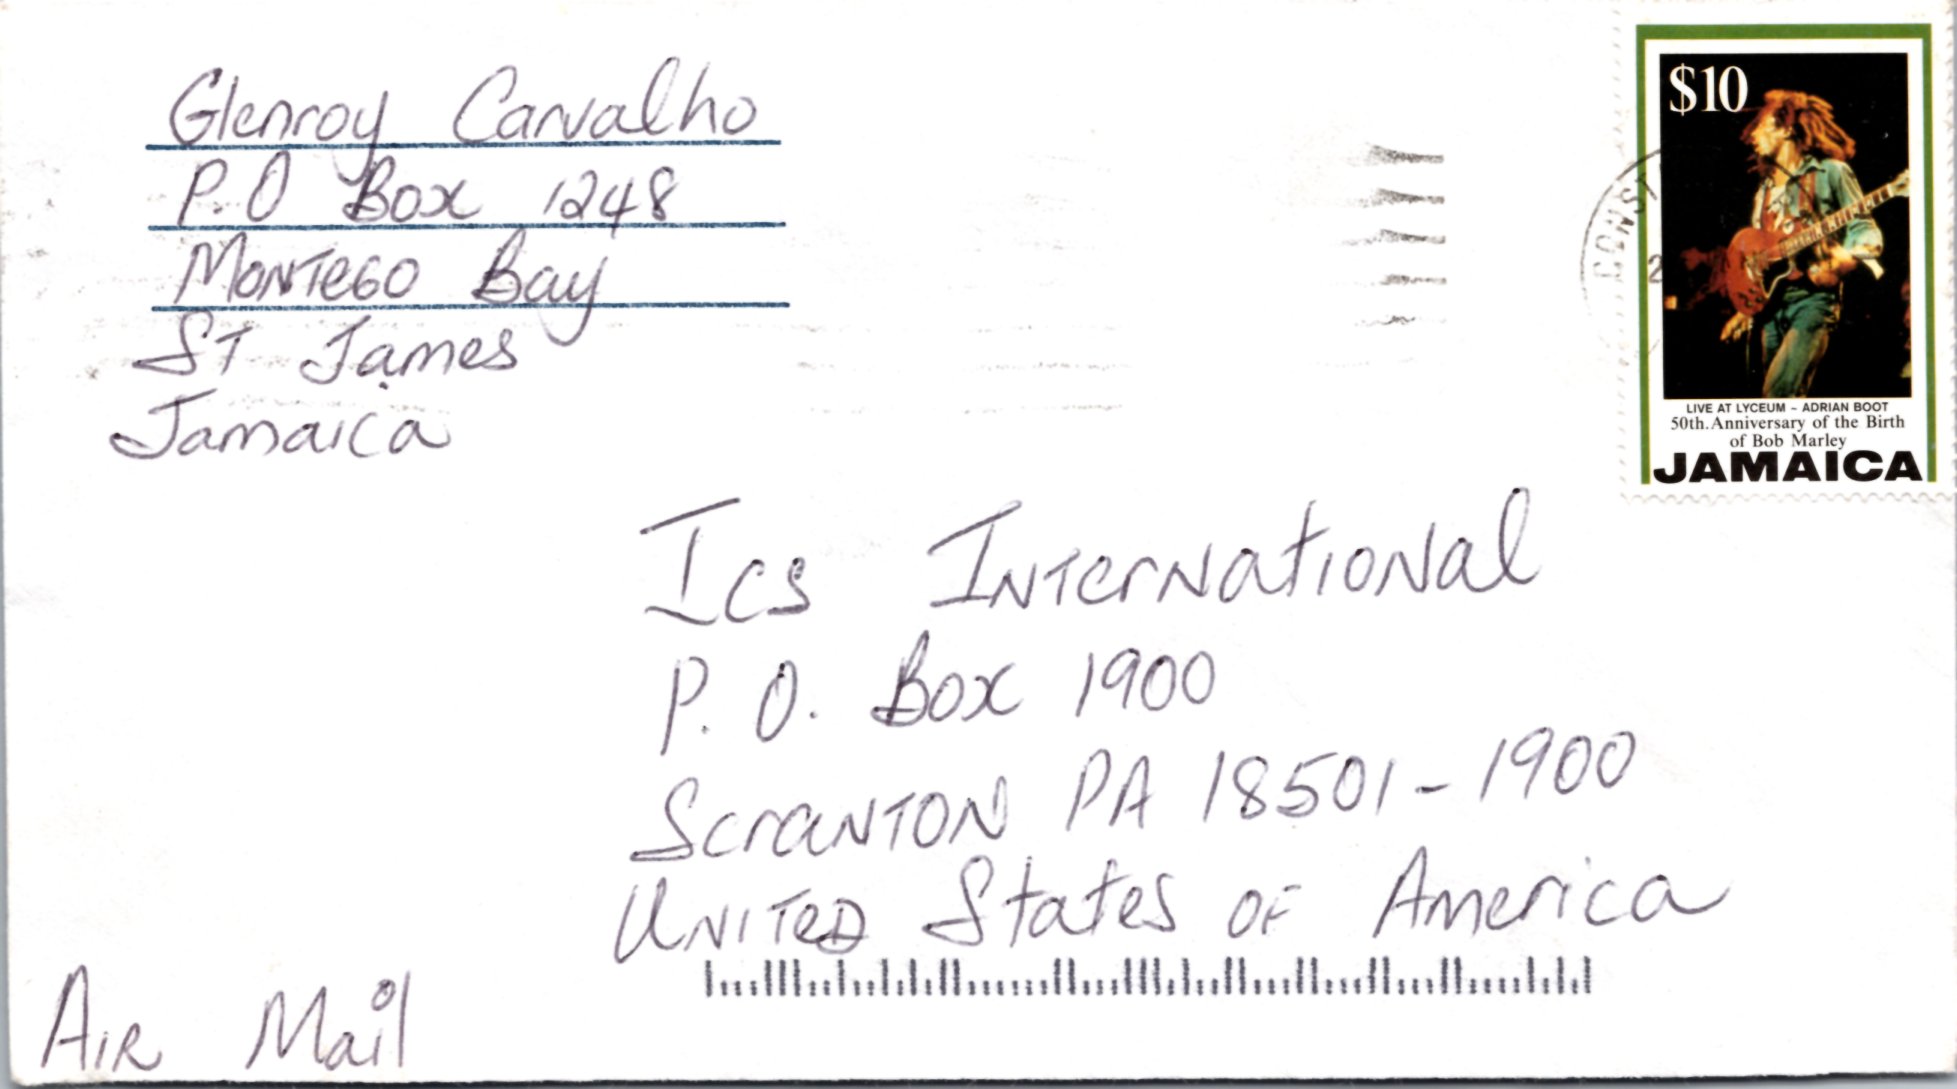 Glenroy Carvalho
P.O Box 1248
Montego Bay
St James
Jamaica
$10
LIVE AT LYCEUM ~ ADRIAN BOOT
50th. Anniversary of the Birth
of Bob Marley
JAMAICA
Ics International
P. O. Box 1900
Scranton PA 18501-1900
United States of America
Air Mail